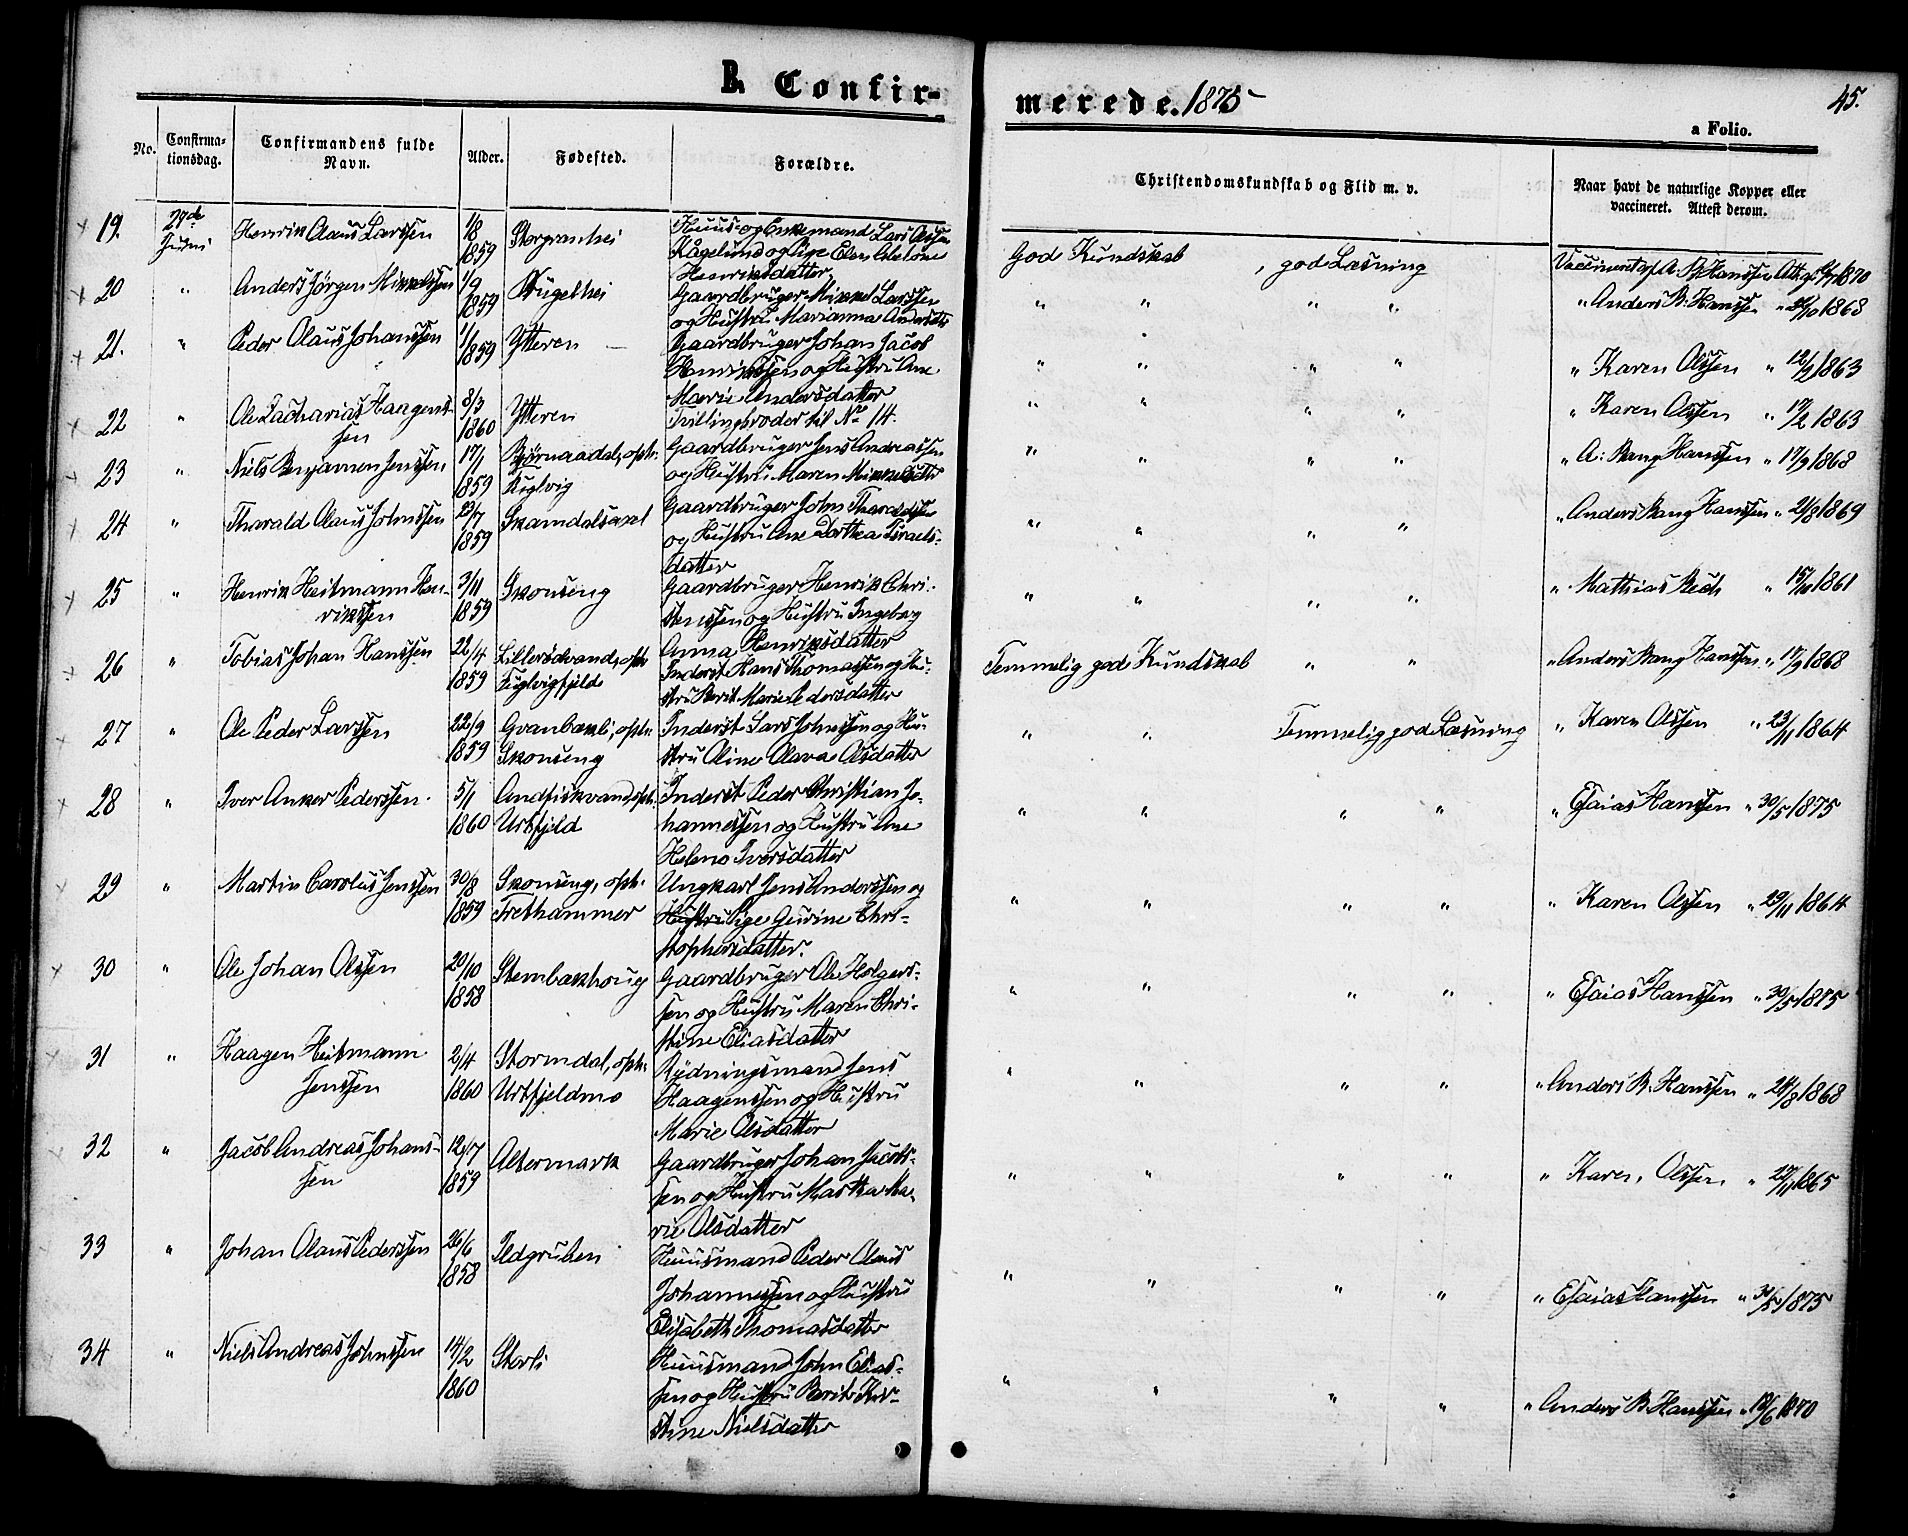 B. Confir-
merede. 1875
45.
a Folio.
No.
Confirma-
tionsdag.
Confirmandens fulde
Navn.
Alder.
Fødested.
Forældre.
Christendomskundskab og Flid m. v.
Naar havt de naturlige Kopper eller
vaccineret. Attest derom.
19. 27de Juni Henrik Olaus Larssen 1/8 1859 Storgranhei
Huus- og Enkemand Lars Olsen
Kågelund og Pige Elen Helene
Henriksdatter
God Kundskab, god Læsning
Vaccineret af A. B. Hanssen Att. 1870
20 " Anders Jørgen Mikkelssen 1/9 1859
Gaardbruger Mikkel Larssen
og Hustru Marianna Andersdtr
" " " " " Anders B. Hanssen " 1868
21. " Peder Olaus Johanssen 1/1 1859 Ytteren
Gaardbruger Johan Jacob
Henrikssen og Hustru Ane
Marie Andersdatter
" " " " " Karen Olssen " 12/2 1863
22 " Ole Zacharias Haagens-
sen 8/3 1860 Ytteren
Tvillingbroder til No 14.
" " " " " Karen Olssen " 17/2 1863
23 " Niels Benjamen Jenssen 17/1 1859 Bjørnaadal, opdr.
Fuglvig
Gaardbruger Jens Andreassen
og Hustru Maren Mikkelsdatter
" " " " " A: Bang Hanssen " 17/9 1868
24 " Tharald Olaus Johnssen 23/7 1859 Skamdalsaxel
Gaardbruger John Tharaldssen
og Hustru Ane Dorthea Israels-
datter
" " " " " Anders Bang Hanssen " 21/8 1869
25 " Henrik Heitmann Hen-
rikssen 3/11 1859 Skonseng
Gaardbruger Henrik Chri-
stenssen og Hustru Ingeborg
Anna Henriksdatter
" " " " " Mathias Bech " 1861
26 " Tobias Johan Hanssen 22/4 1859 Lillerødvand, opdr.
Fuglvigfjeld
Inderst Hans Thomassen og Hu-
stru Berit Marie Pedersdatter
Temmelig god Kundskab " " " Anders Bang Hanssen " 17/9 1868
27 " Ole Peder Larssen 22/9 1859 Granbækli, opdr.
Skonseng
Inderst Lars Johnssen og Hu-
stru Oline Olava Olsdatter
" " Temmelig god Læsning " Karen Olssen " 23/11 1864
28 " Iver Anker Pederssen 5/1 1860 Andfiskvand, opdr.
Urtfjeld
Inderst Peder Christian Jo-
hannessen og Hustru Ane
Helene Iversdatter
" " " " " Esaias Hanssen " 30/5 1875
29 " Martin Carolus Jenssen 30/8 1859 Skonseng, opdr.
Trethammer
Ungkarl Jens Anderssen og
Hustru Pige Gurine Chri-
stophersdatter.
" " " " " Karen Olssen " 29/11 1864
30 " Ole Johan Olssen 20/10 1858 Stenbækhoug
Gaardbruger Ole Holgers-
sen og Hustru Maren Chri-
stine Eliasdatter
" " " " " Esaias Hanssen " 30/5 1875
31 " Haagen Heitmann
Jenssen 2/4 1860 Stormdal, opdr.
Urtfjeldmo
Rydningsmand Jens
Haagenssen og Hustru
Marie Olsdatter
" " " " " Anders B. Hanssen " 24/8 1868
32 " Jacob Andreas Johans-
sen 12/7 1859 Altermark
Gaardbruger Johan Jacobs-
sen og Hustru Martha Ma-
rie Olsdatter
" " " " " Karen Olssen " 27/11 1865
33 " Johan Olaus Pederssen 26/6 1858 Ildgruben
Huusmand Peder Olaus
Johannessen og Hustru
Elisabeth Thomasdatter
" " " " " Esaias Hanssen " 30/5 1875
34 " Niels Andreas Johnssen 14/2 1860 Storli
Huusmand John Elias-
sen og Hustru Berit Kir-
stine Nielsdatter
" " " " " Anders B. Hanssen " 12/6 1870